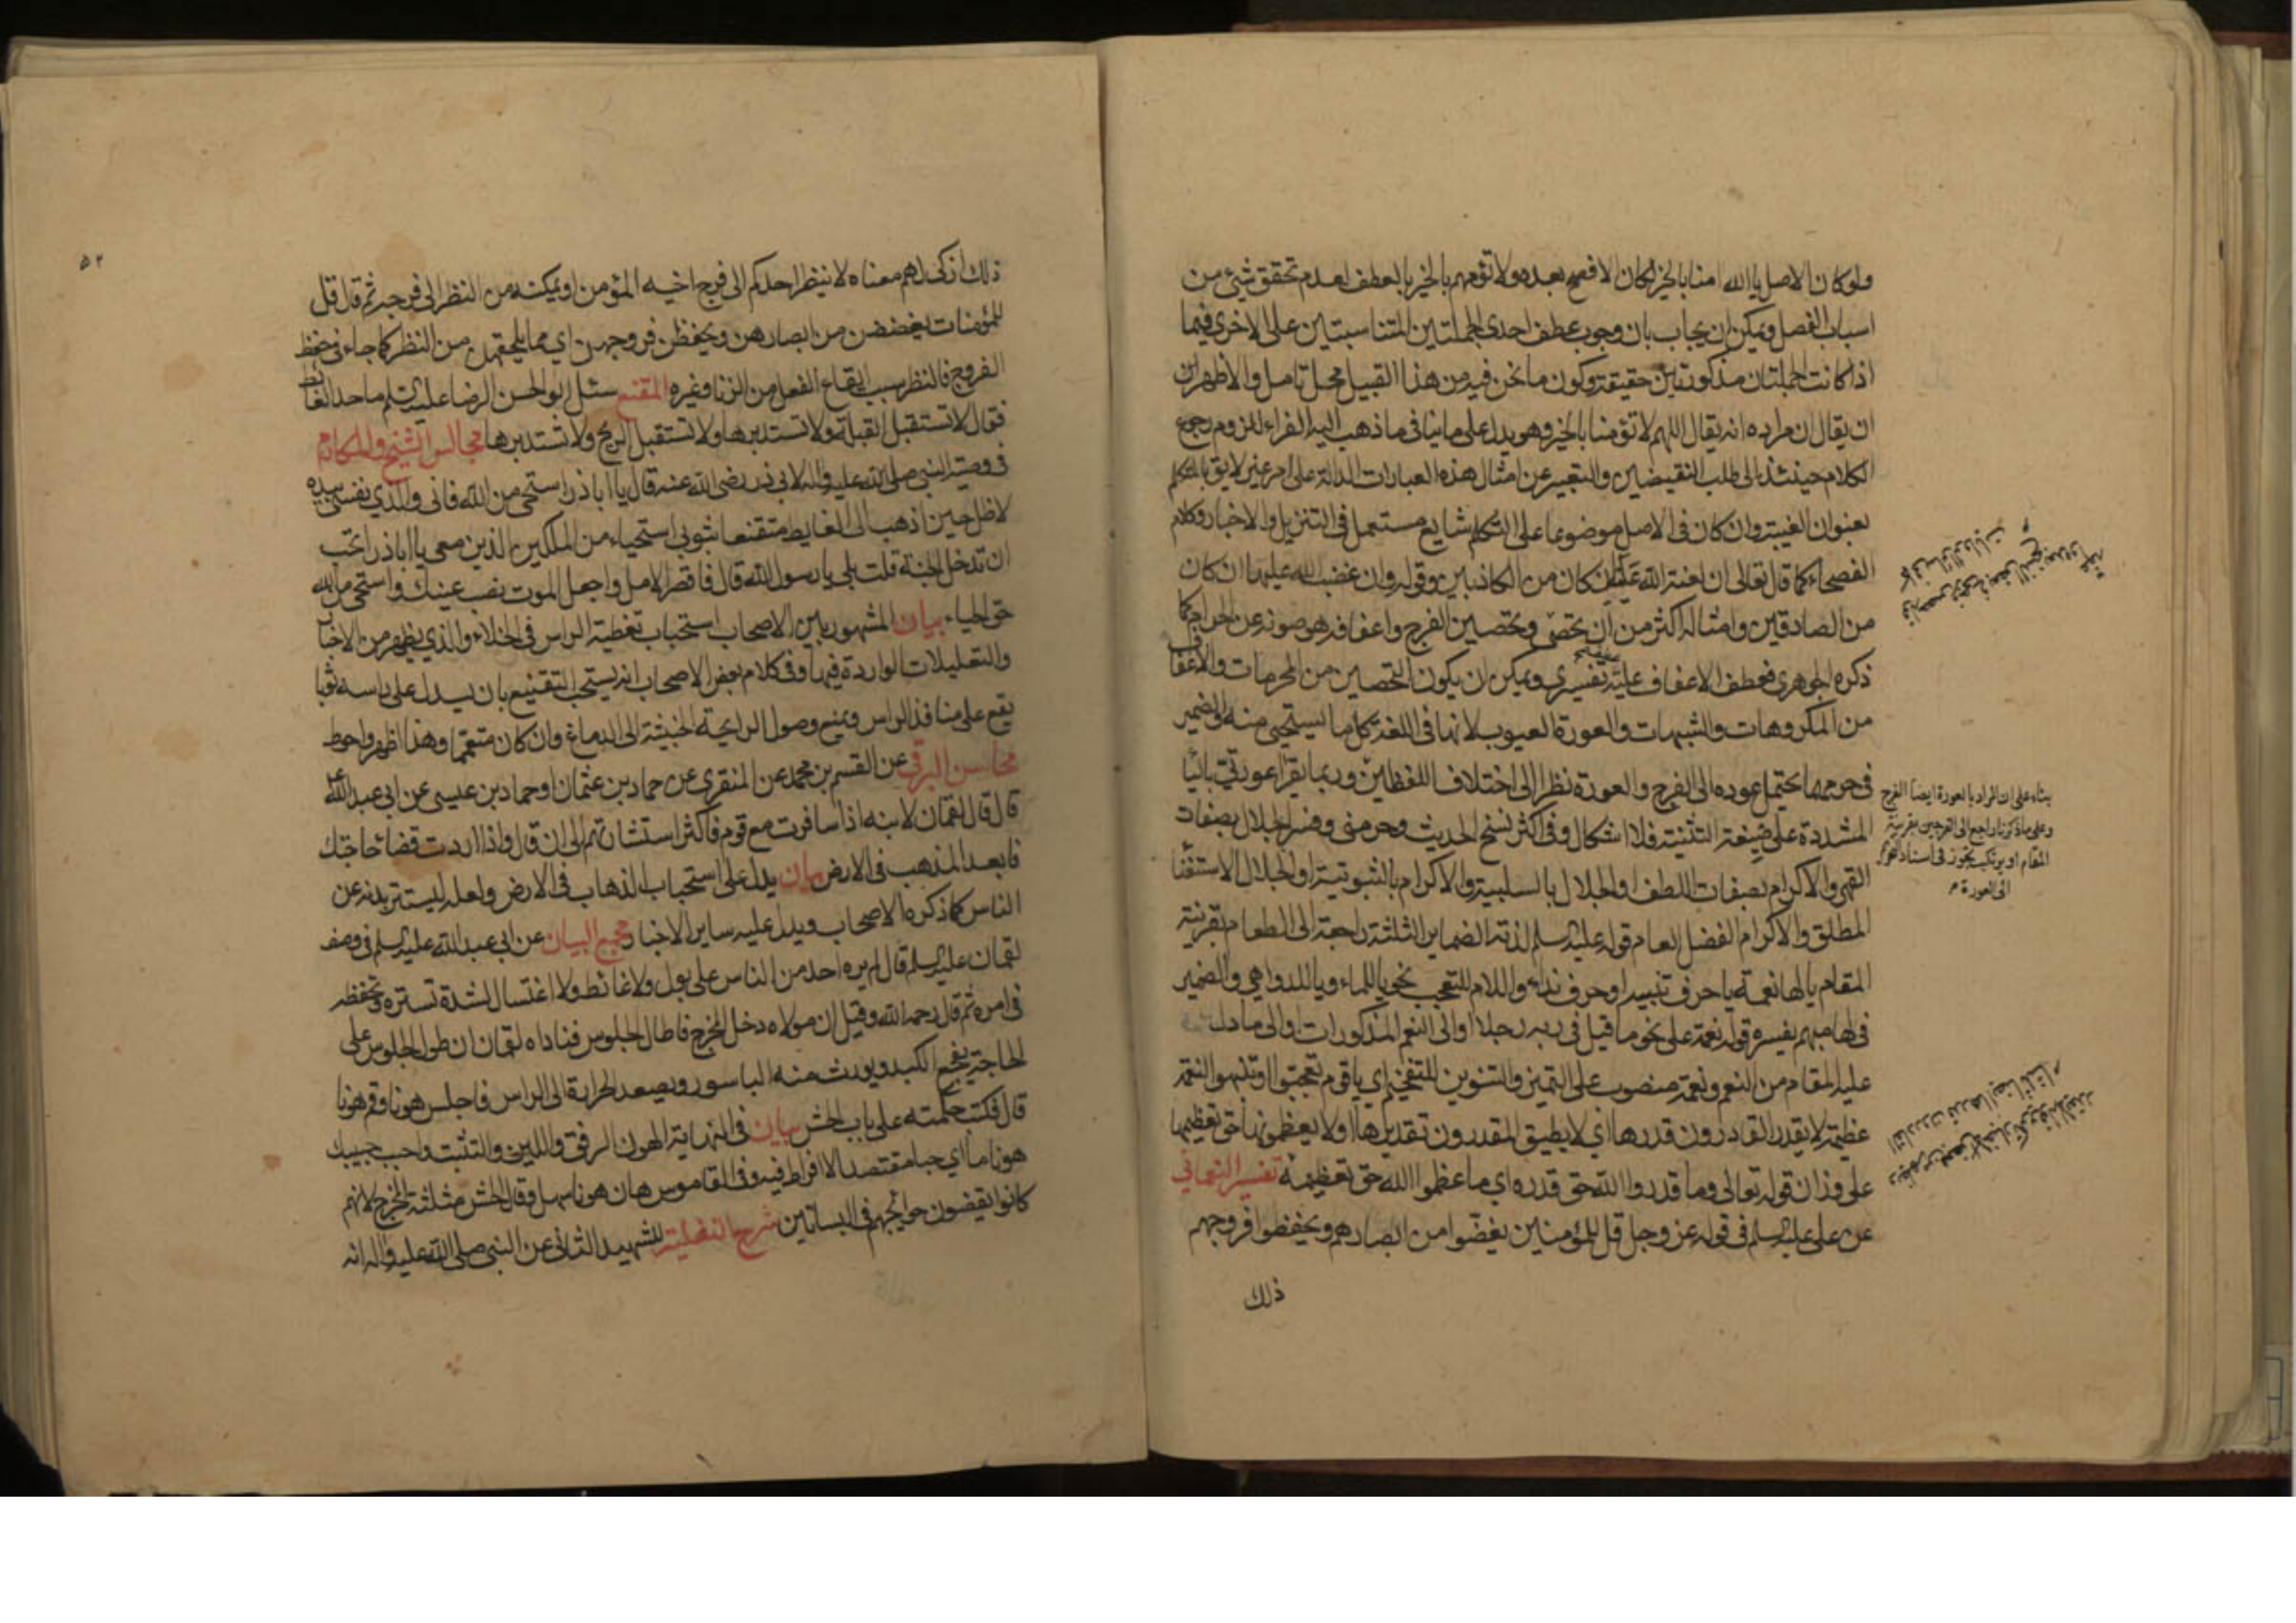 ولو كان الاصل يا الله امنا بالخير لكان الافصح بعده ولا تؤمهم بالخير بالعطف لعدم تحقق شئ من
اسباب الفصل ويمكن ان يجاب بان وجوب عطف احدى الجملتين المتناسبتين على الاخرى فيما
اذا كانت الجملتان مذكورتين حقيقة وكون ما نحن فيه من هذا القبيل محل تامل والاظهر ان
ان يقال ان مراده انه يقال اللهم لا تؤمنا بالخير وهو يدل على ما ينافى ما ذهب اليه الفراء للزوم رجوع
الكلام حينئذ الى طلب النقيضين والتعبير عن امثال هذه العبارات الدالة على امر غير لايق بالمتكلم
بعنوان الغيبة وان كان فى الاصل موضوعا على التكلم شايع مستعمل فى التنزيل والاخبار وكلام
الفصحاء كما قال تعالى ان لعنة الله عليه ان كان من الكاذبين وقوله وان غضب الله عليها ان كان
من الصادقين وامثاله اكثر من ان يحصى وتحصين الفرج واعفافه هو صونه عن الحرام كما
ذكره الجوهرى فعطف الاعفاف عليه تفسيرى ويمكن ان يكون التحصين من المحرمات والاعفاف
من المكروهات والشبهات والعورة العيوب لانها فى اللغة كل ما يستحيى منه والضمير
فى حرمها يحتمل عوده الى الفرج والعورة نظرا الى اختلاف اللفظين وربما يقرا عورتي بالياء
المشددة على صيغة التثنية فلا اشكال وفى اكثر نسخ الحديث وحرمنى وفسر الجلال بصفات
القهر والاكرام بصفات اللطف او الجلال بالسلبية والاكرام بالثبوتية او الجلال الاستغناء
المطلق والاكرام الفضل العام قوله عليه السلم لذته الضماير الثلثة راجعة الى الطعام بقرينة
المقام يا لها نعمة يا حرف تنبيه او حرف نداء واللام للتعجب نحو يا للماء ويا للدواهي والضمير
فى لها مبهم يفسره قوله نعمة على نحو ما قيل فى ربه رجلا او الى النعم المذكورات او الى ما دل
عليه المقام من النعم ونعمة منصوب على التميز والتنوين للتفخيم اي يا قوم تعجبوا او تنبهوا النعمة
عظيمة لا يقدر القادرون قدرها اي لا يطيق المقدرون تقديرها او لا يعظمونها حق تعظيمها
على وزان قوله تعالى وما قدروا الله حق قدره اي ما عظموا الله حق تعظيمه تفسير النعماني
عن على عليه السلم فى قوله عز وجل قل للمؤمنين يغضوا من ابصارهم ويحفظوا فروجهم
ذلك
بناء على ان المراد بالعورة ايضا الفرج
وعلى ما ذكرنا راجع الى الفرجين بقرينة
المقام او يرتكب تجوز فى اسناد
الى العورة م
٥٢
ذلك ازكى لهم معناه لا ينظر احدكم الى فرج اخيه المؤمن او يمكنه من النظر الى فرجه ثم قال قل
للمؤمنات يغضضن من ابصارهن ويحفظن فروجهن اي مما يلحقهن من النظر كما جاء فى حفظ
الفروج فالنظر سبب ايقاع الفعل من الزنا وغيره المقنع سئل ابو الحسن الرضا عليه السلم ما حد الغائط
فقال لا تستقبل القبلة ولا تستدبرها ولا تستقبل الريح ولا تستدبرها مجالس الشيخ والمكارم
فى وصية النبى صلى الله عليه واله لابى ذر رضى الله عنه قال يا اباذر استحى من الله فانى والذي نفسى بيده
لاظل حين اذهب الى الغايط متقنعا بثوبى استحياء من الملكين الذين معى يا اباذر اتحب
ان تدخل الجنة قلت بلى يا رسول الله قال فاقصر الامل واجعل الموت نصب عينك واستحى من الله
حق الحياء بيان المشهور بين الاصحاب استحباب تغطية الراس فى الخلاء والذي يظهر من الاخبار
والتعليلات الواردة فيها وفى كلام بعض الاصحاب انه يستحب التقنيع بان يسدل على راسه ثوبا
يقع على منافذ الراس ويمنع وصول الرايحة الخبيثة الى الدماغ وان كان متعمما وهذا اظهر واحوط
محاسن البرقي عن القسم بن محمد عن المنقرى عن حماد بن عثمان او حماد بن عيسى عن ابى عبد الله ع
قال قال لقمان لابنه اذا سافرت مع قوم فاكثر استشارتهم الى ان قال واذا اردت قضاء حاجتك
فابعد المذهب فى الارض بيان يدل على استحباب الذهاب فى الارض ولعله ليستتر بدنه عن
الناس كما ذكره الاصحاب ويدل عليه ساير الاخبار مجمع البيان عن ابى عبد الله عليه السلم فى وصف
لقمان عليه السلم قال لم يره احد من الناس على بول ولا غائط ولا اغتسال لشدة تستره وتحفظه
فى امره ثم قال رحمه الله وقيل ان مولاه دخل المخرج فاطال الجلوس فناداه لقمان ان طول الجلوس على
الحاجة يفجع الكبد ويورث منه الباسور ويصعد الحرارة الى الراس فاجلس هونا وقم هونا
قال فكتب حكمته على باب الحش بيان فى النهاية الهون الرفق واللين والتثبت واحبب حبيبك
هونا ما اي حبا مقتصدا لا افراط فيه وفى القاموس هان هونا سهل وقال الحش مثلثة المخرج لانهم
كانوا يقضون حوائجهم فى البساتين شرح النفلية للشهيد الثانى عن النبى صلى الله عليه واله انه